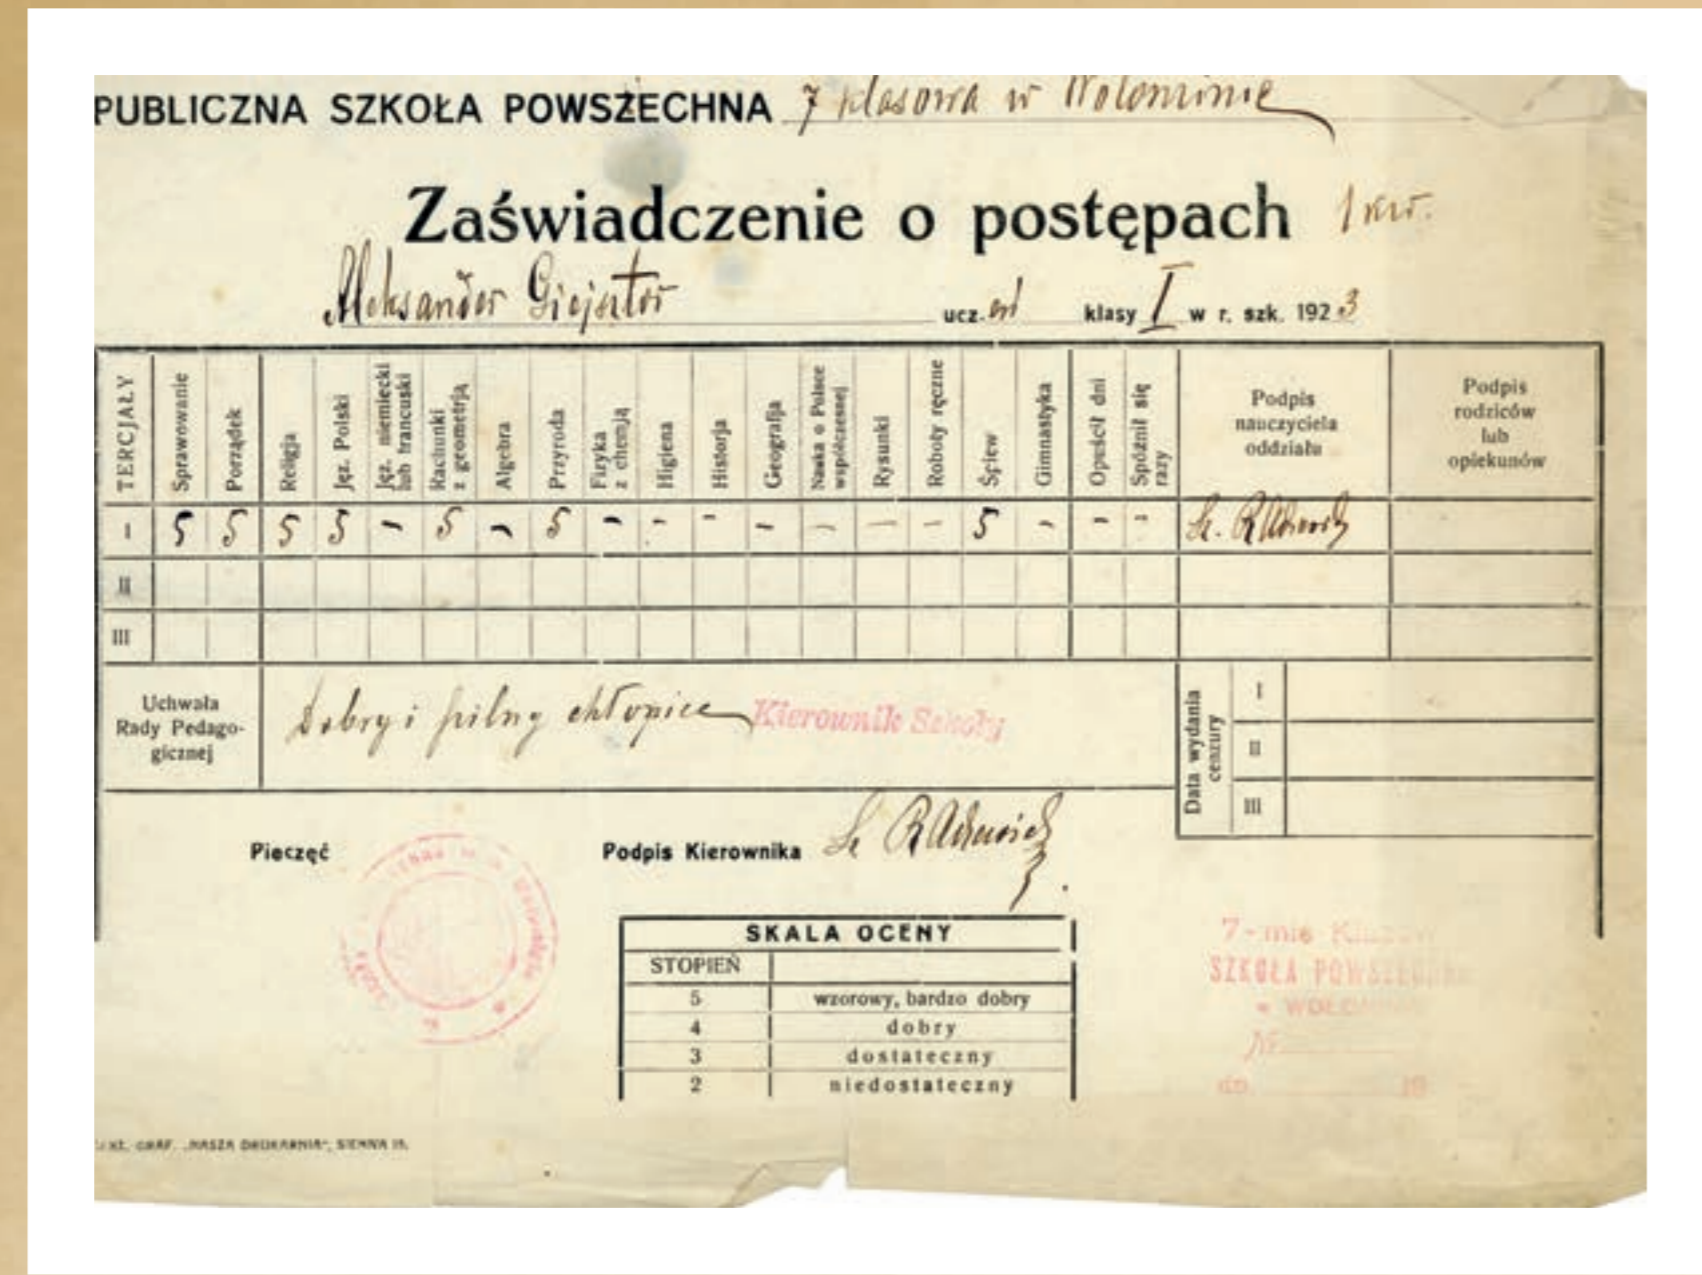 PUBLICZNA SZKOŁA POWSZECHNA 7 klasowa w Wołominie
Zaświadczenie o postępach I kw.
Aleksander Giejsztor ucz.eń klasy I w r. szk. 1923
TERCJAŁY Sprawowanie Porządek Religja Jęz. Polski Jęz. niemiecki lub francuski Rachunki z geometrją Algebra Przyroda Fizyka z chemją Higiena Historja Geografja Nauka o Polsce współczesnej Rysunki Roboty ręczne Śpiew Gimnastyka Opuścił dni Spóźnił się razy Podpis nauczyciela oddziału Podpis rodziców lub opiekunów
I 5 5 5 5 - 5 - 5 - - - - - - - 5 - - - St.
II
III
Uchwała Rady Pedagogicznej Dobry i pilny chłopiec Kierownik Szkoły
Data wydania cenzury I
II
III
Pieczęć Podpis Kierownika St.
SKALA OCENY
STOPIEŃ
5 wzorowy, bardzo dobry
4 dobry
3 dostateczny
2 niedostateczny
7-mio
SZKOŁA POWSZECHNA
w WOŁOMINIE
№
dn. 19
GRAF. „NASZA DRUKARNIA", SIENNA 15.